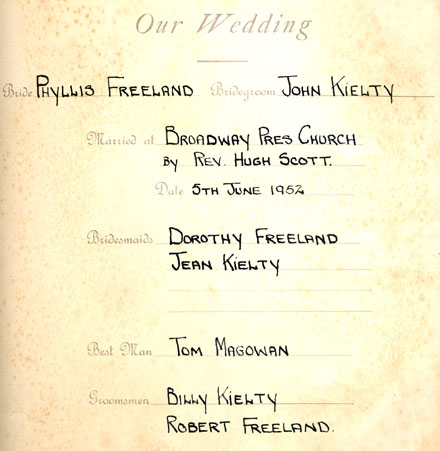 Our Wedding
Bride Phyllis Freeland Bridegroom John Kielty
Married at Broadway Pres Church
by Rev. Hugh Scott.
Date 5th June 1952
Bridesmaids Dorothy Freeland
Jean Kielty
Best Man Tom Magowan
Groomsmen Billy Kielty
Robert Freeland.